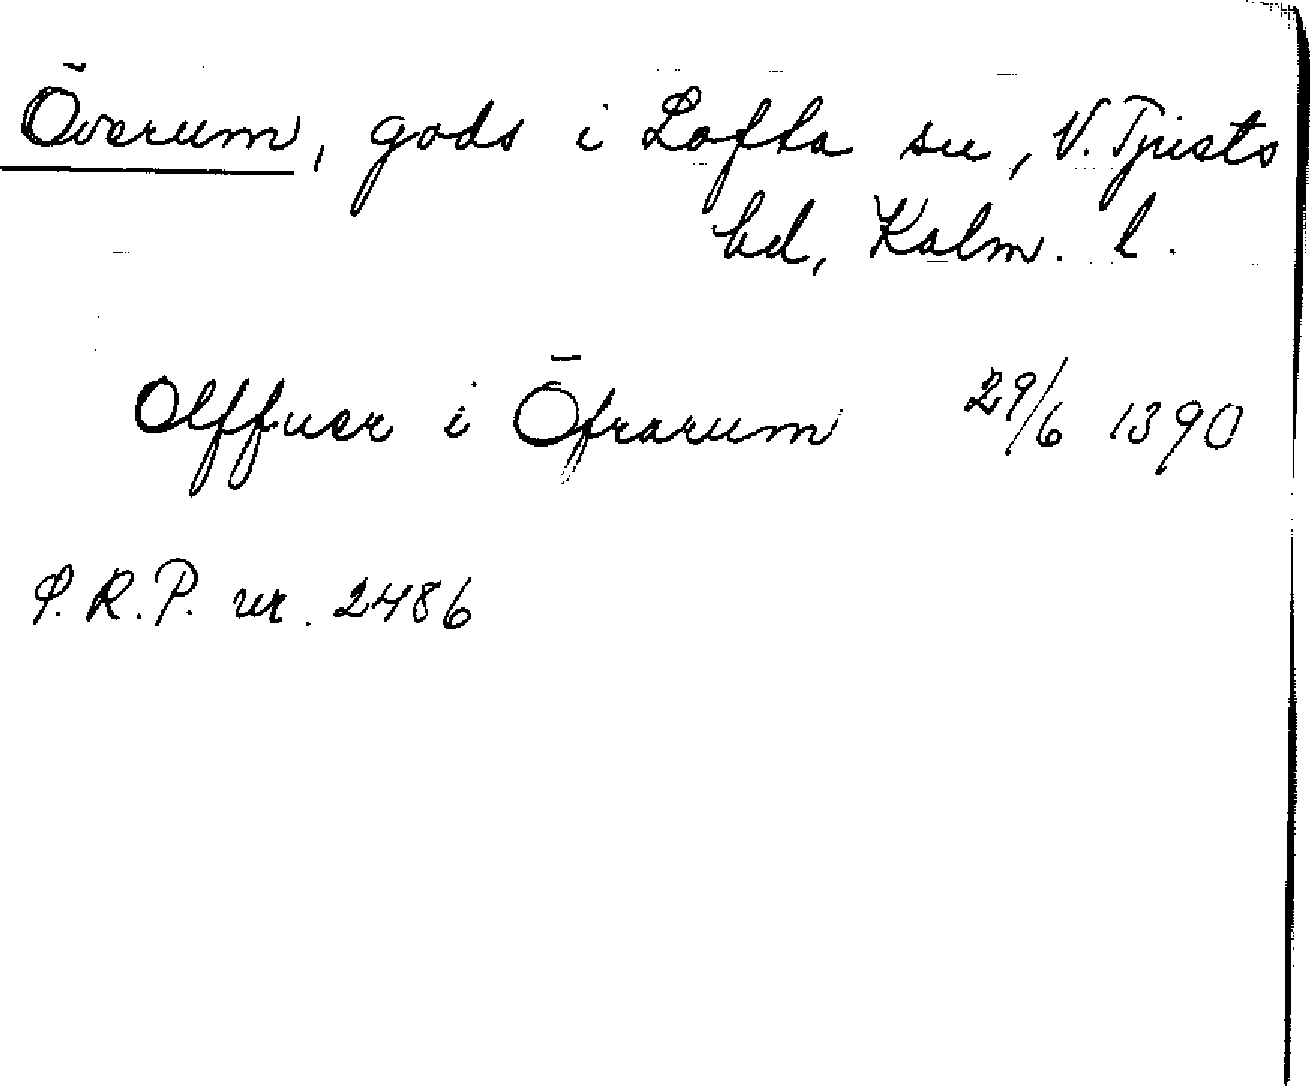 Överum, gods i Lofta sn, V. Tjusts
hd, Kalm. l.
Olffuer i Öfrarum 29/6 1390
S.R.P. nr. 2486